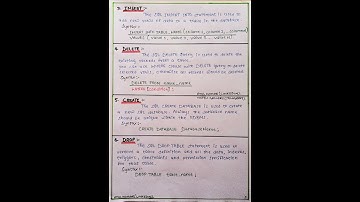 3. INSERT :-
The SQL INSERT INTO statement is used to
add new rows of data to a table in the database.
Syntax:
INSERT INTO TABLE_NAME (column1, column2, ... columnN)
VALUES ( value 1, value 2, value 3, ... valueN);
4. DELETE :-
The SQL DELETE Query is used to delete the
existing records from a table.
You can use WHERE clause with DELETE query to delete
selected rows, otherwise all records would be deleted.
Syntax:
DELETE FROM table_name
WHERE [condition];
5. CREATE :-
The SQL CREATE DATABASE is used to create
a new SQL database. Always the database name
should be unique within the RDBMS.
Syntax:
CREATE DATABASE DatabaseName;
6. DROP :-
The SQL DROP TABLE statement is used to
remove a table definition and all the data, indexes,
triggers, constraints and permission specifications
for that table.
Syntax:
DROP TABLE table_name;